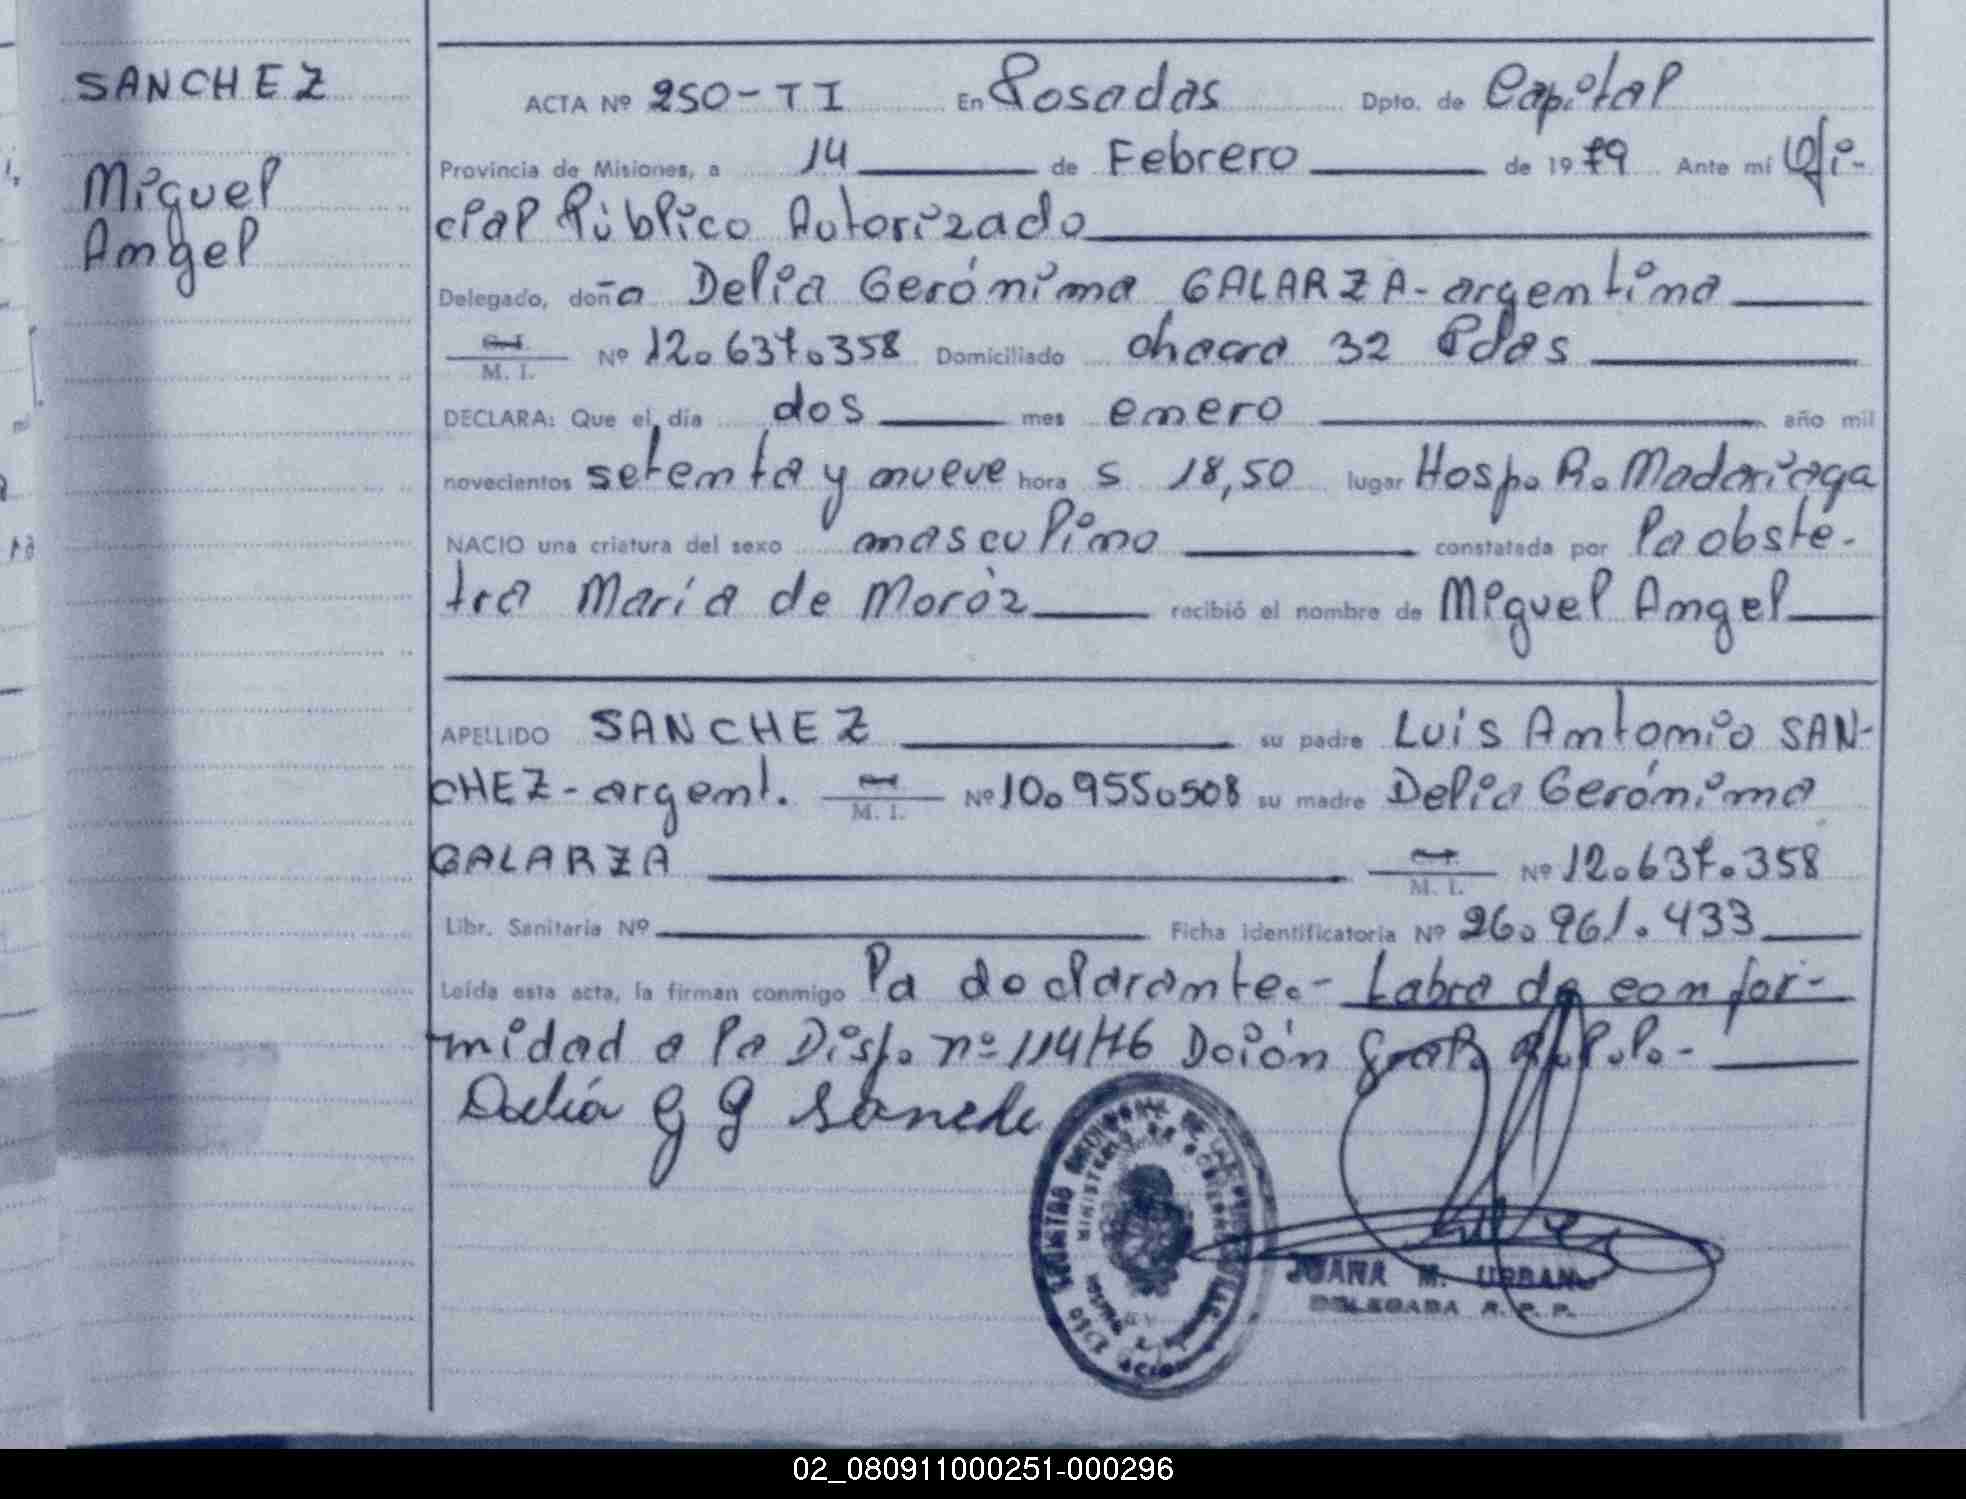 SANCHEZ
Miguel
Angel
ACTA Nº 250-TI En Posadas Dpto. de Capital
Provincia de Misiones, a 14 de Febrero de 1979 Ante mí Ofi-
cial Público Autorizado
Delegado, doña Delia Gerónima GALARZA-argentina
C.I.
M. I. Nº 12.637.358 Domiciliado chacra 32 Pdas
DECLARA: Que el día dos mes enero año mil
novecientos setenta y nueve hora s 18,50 lugar Hosp. R. Madariaga
NACIO una criatura del sexo masculino constatada por la obsté-
tra María de Moróz recibió el nombre de Miguel Angel
APELLIDO SANCHEZ su padre Luis Antonio SAN-
CHEZ-argent. M. I. Nº 10.955.508 su madre Delia Gerónima
GALARZA M. I. Nº 12.637.358
Libr. Sanitaria Nº Ficha identificatoria Nº 26.961.433
Leída esta acta, la firman conmigo la declarante.- Labrada de confor-
midad a la Disp. nº 114/76 Dción Gral. R.P.P.-
Delia G G Sanche
MINISTERIO DE GOBIERNO
JUANA M. URBAN
DELEGADA R. P. P.
02_080911000251-000296